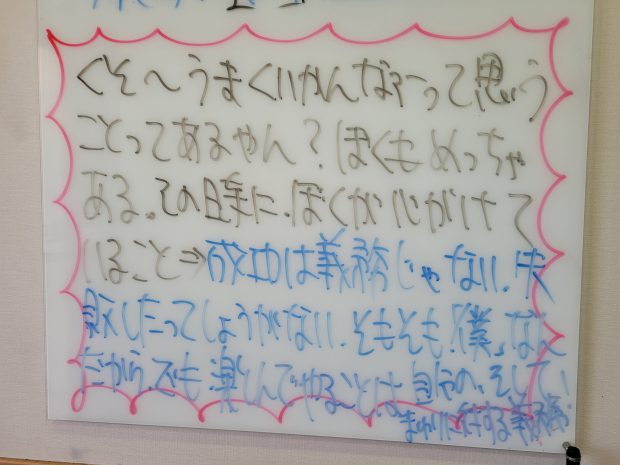 くそ～うまくいかんなーって思う
ことってあるやん?ぼくもめっちゃ
ある。その時に、ぼくが心がけて
いること⇒成功は義務じゃない、失
敗したってしょうがない。そもそも「僕」なん
だから。でも楽しんでやることは自分の、そして、
まわりに対する義務。